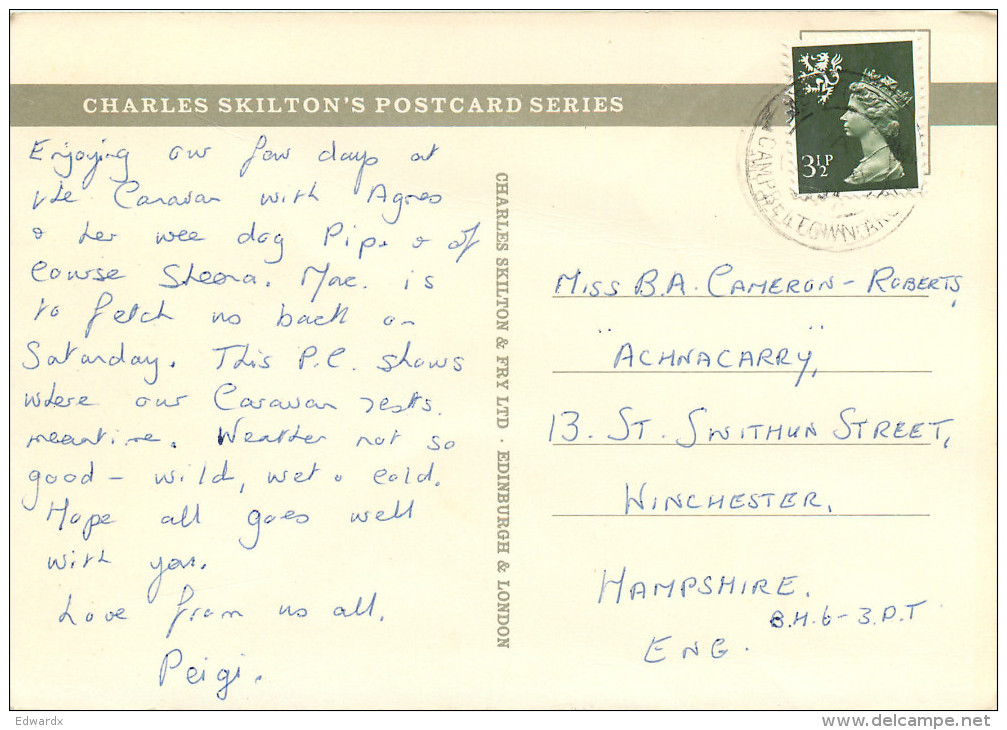 CHARLES SKILTON'S POSTCARD SERIES
Enjoying our few days at
the Caravan with Agnes
& her wee dog Pip. & of
course Sheena. Mac. is
to fetch us back on
Saturday. This P.C. shows
where our Caravan rests.
meantime. Weather not so
good - wild, wet & cold.
Hope all goes well
with you.
Love from us all.
Peigi.
CHARLES SKILTON & FRY LTD · EDINBURGH & LONDON
3½P
CAMPBELTOWN
MISS B.A. CAMERON-ROBERTS,
"ACHNACARRY",
13. ST. SWITHUN STREET,
WINCHESTER,
HAMPSHIRE.
B.H.6-3.P.T
ENG.
Edwardx
www.delcampe.net